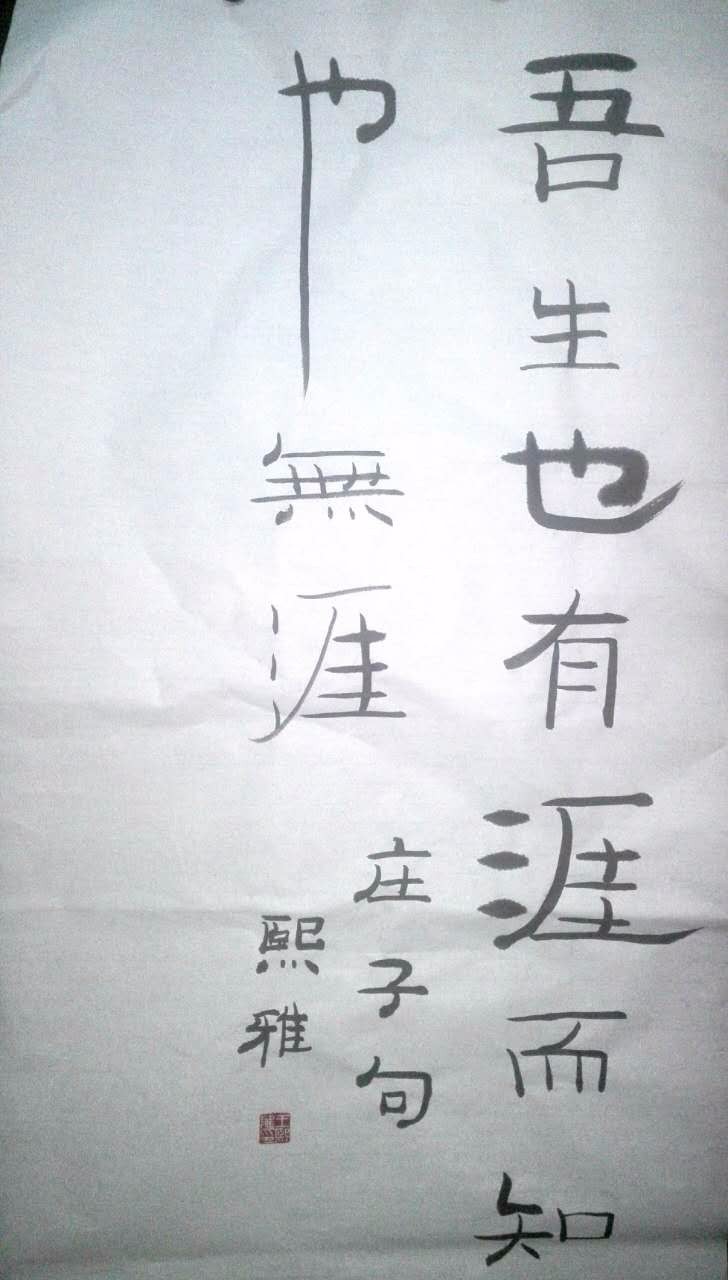 吾生也有涯而知
也無涯
庄子句
熙雅